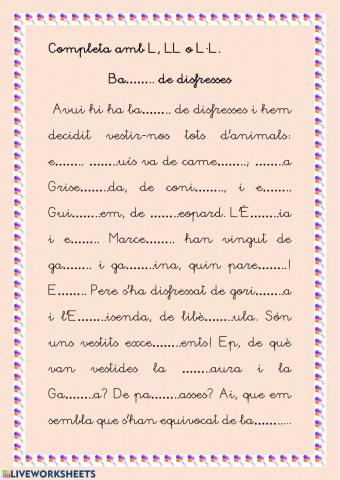 Completa amb L, LL o L·L.
Ba........ de disfresses
Avui hi ha ba........ de disfresses i hem
decidit vestir-nos tots d'animals:
e........ ........uís va de came........; ........a
Grise........da, de coni........, i e........
Gui........em, de ........eopard. L'È........ia
i e........ Marce........ han vingut de
ga........ i ga........ina, quin pare........!
E........ Pere s'ha disfressat de gori........a
i l'E........isenda, de libè........ula. Són
uns vestits exce........ents! Ep, de què
van vestides la ........aura i la
Ga........a? De pa........asses? Ai, que em
sembla que s'han equivocat de ba...........
LIVEWORKSHEETS